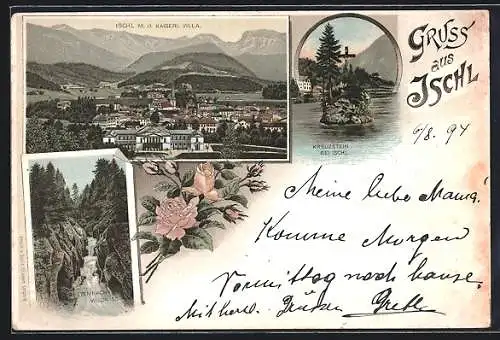 ISCHL M. D. KAISERL. VILLA.
GRUSS
aus
ISCHL
KREUZSTEIN
BEI ISCHL
6/8. 97
Meine liebe Mama!
Komme Morgen
Vormittag nach hause.
Mit herzl. Grüßen Gretl
WILDNISS